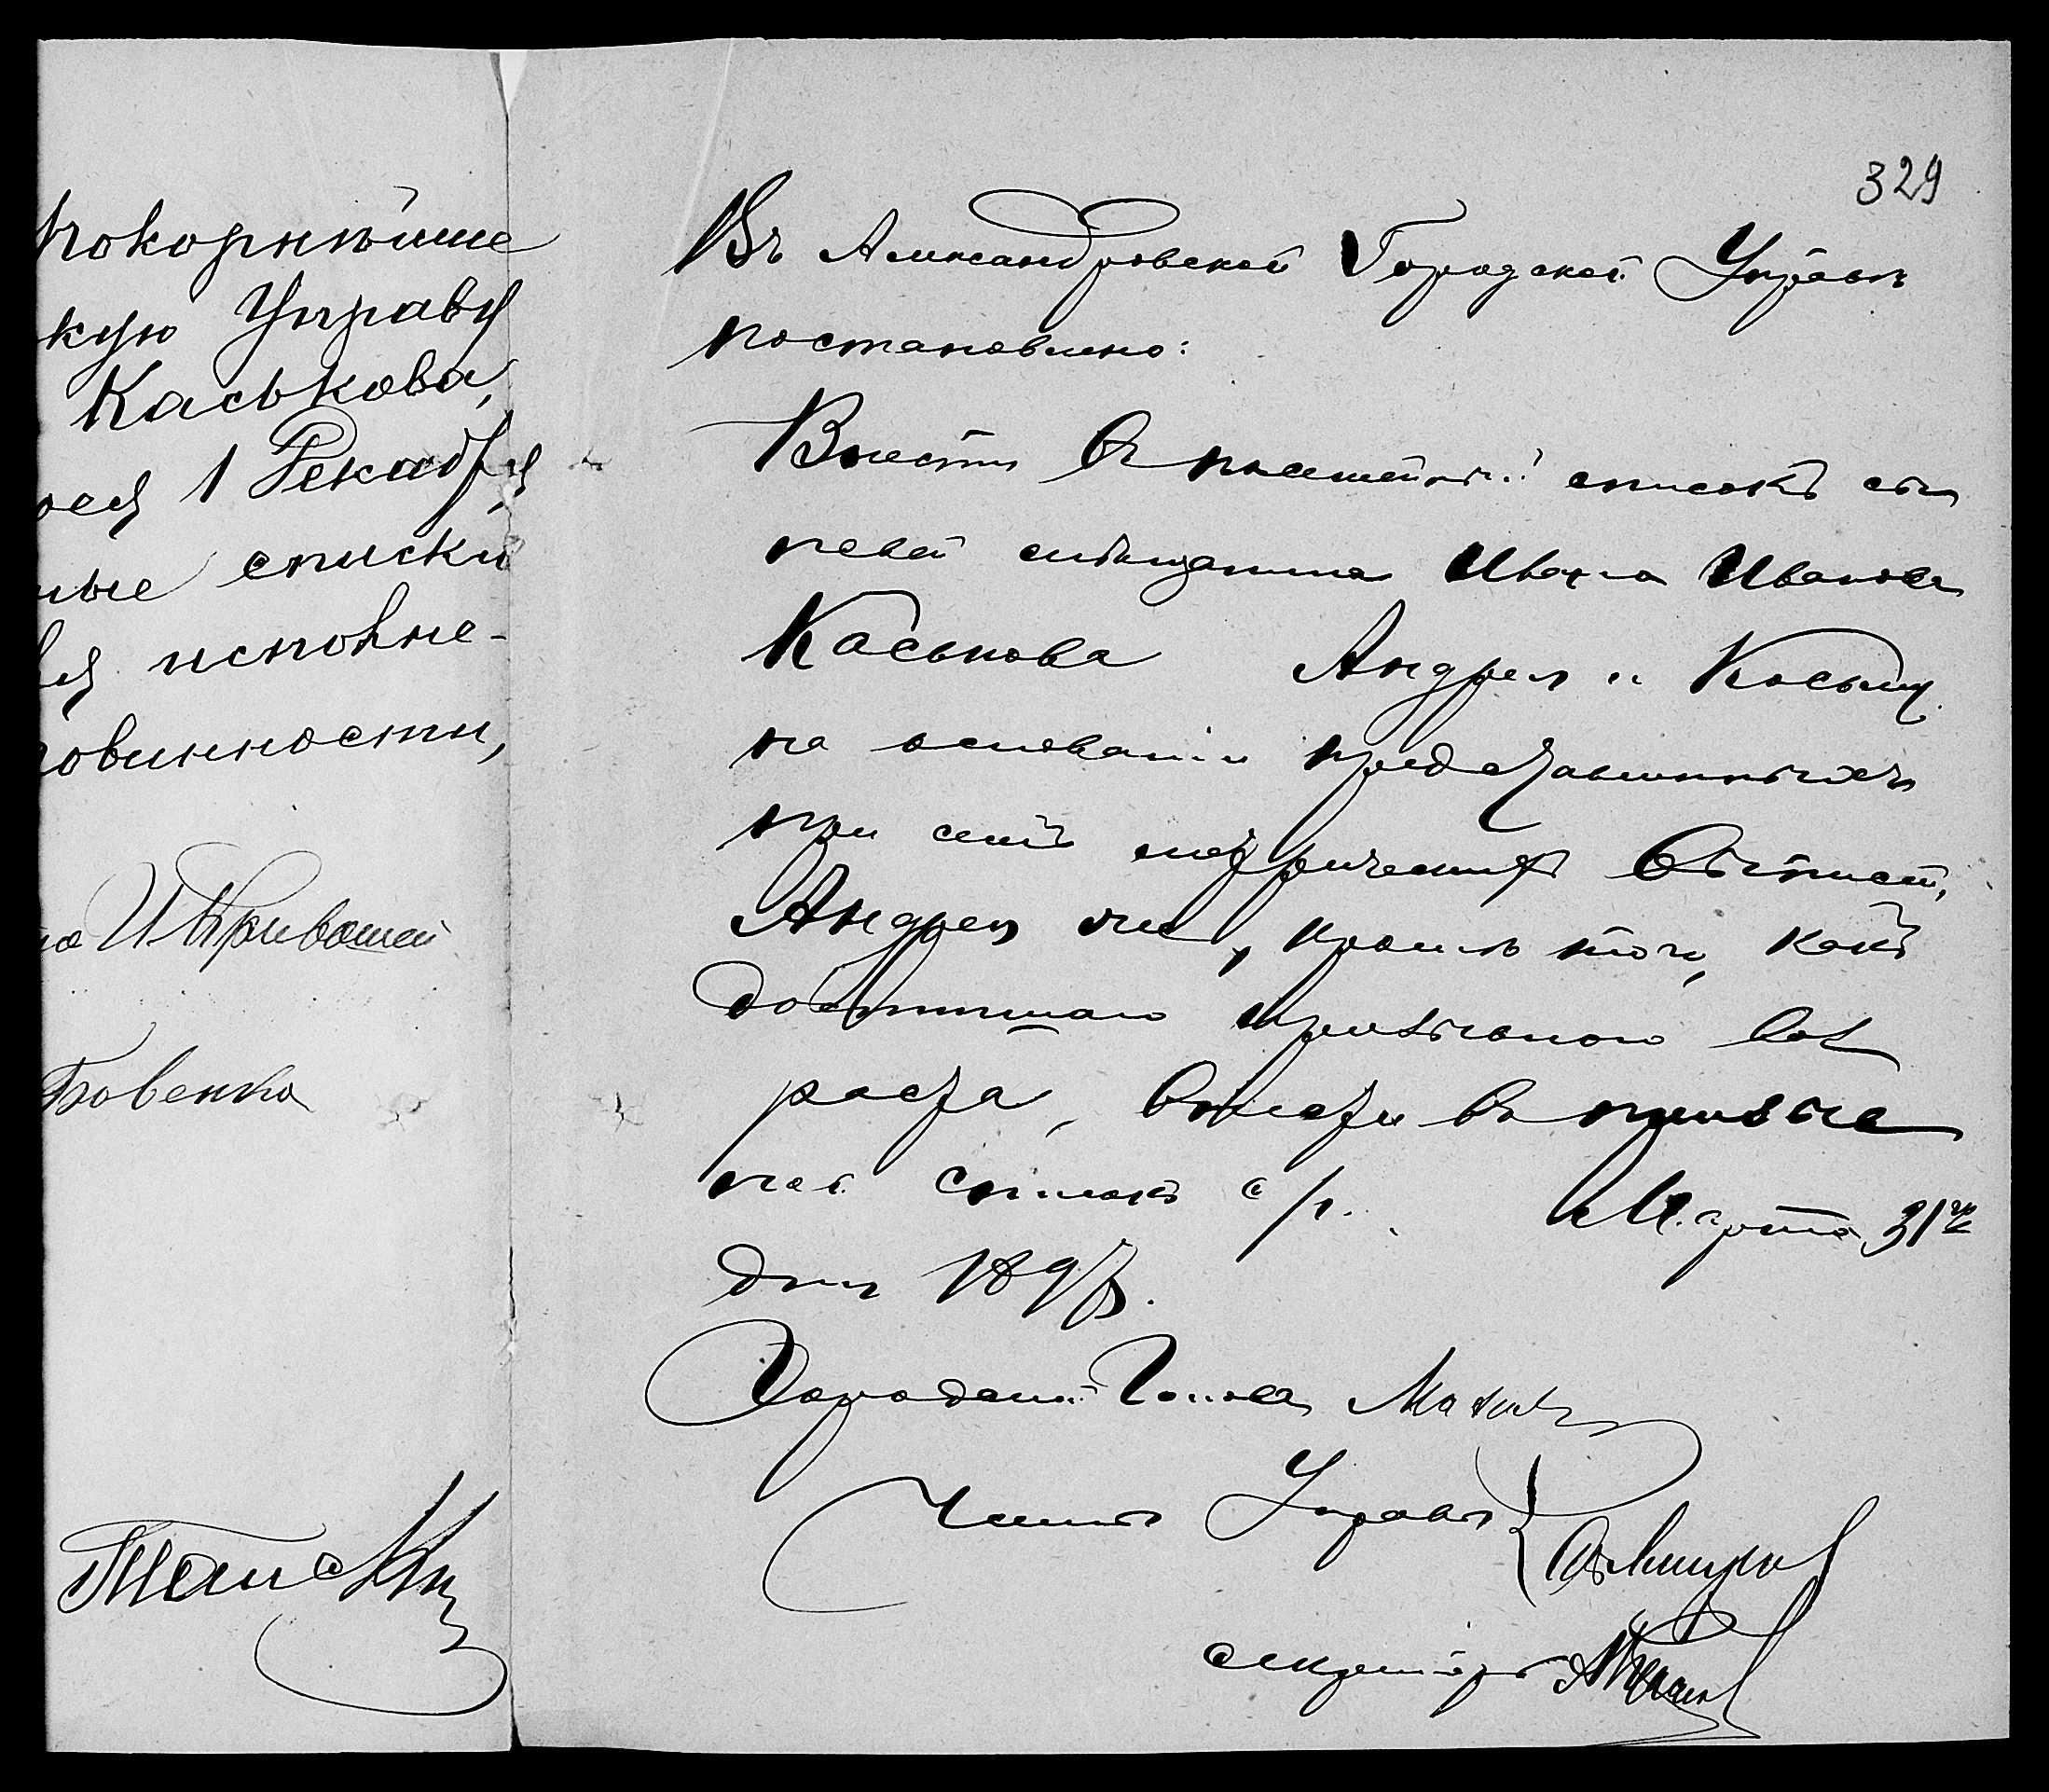 покорнѣйше
кую Управу
Каськова,
1 Декабря
ные списки
исполне-
повинности,
И Кривошей
Бовенко
329
Въ Александровской Городской Управѣ
постановлено:
Внести въ посемейный списокъ сы
новей мѣщанина Ивана Иванова
Каськова Андрея и Косьму
на основаніи представленныхъ
при семъ метрическихъ выписей,
Андрея же, кромѣ того, какъ
достигшаго призывного воз
раста, внести въ призыв
ной списокъ с/г. Марта 31го
дня 1897г.
Городской Голова
Члены Управы
секретарь